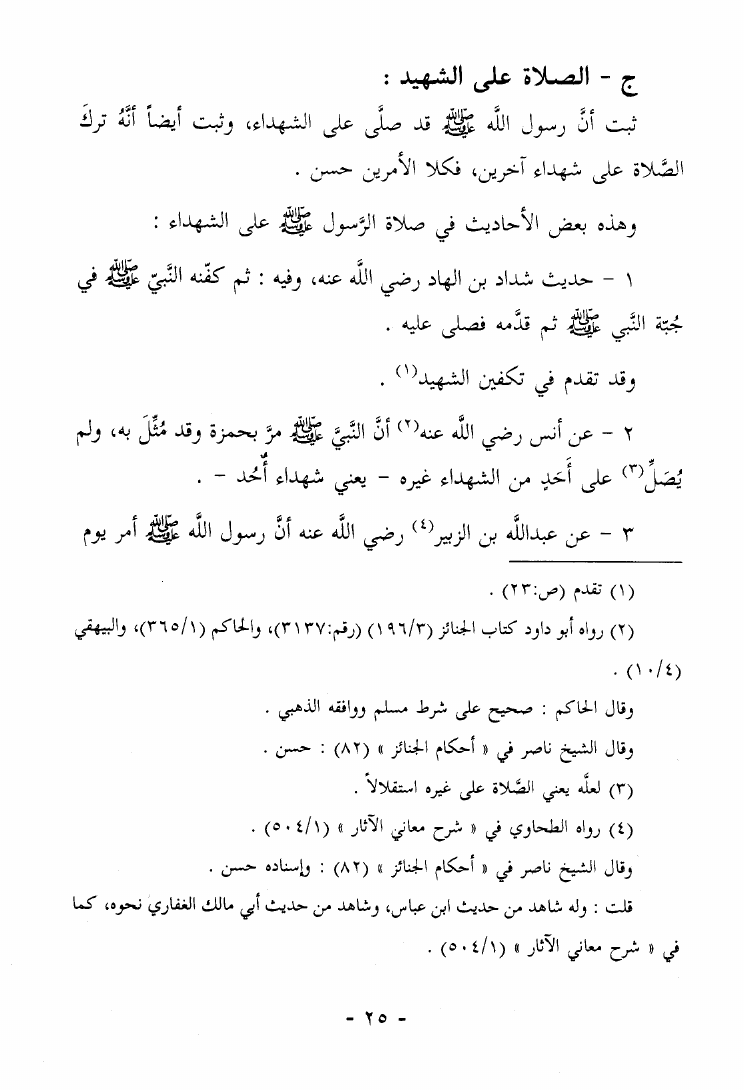 ج - الصلاة على الشهيد :
ثبت أنَّ رسول اللَّه ﷺ قد صلَّى على الشهداء، وثبت أيضاً أنَّهُ تركَ
الصَّلاة على شهداء آخرين، فكلا الأمرين حسن .
وهذه بعض الأحاديث في صلاة الرَّسول ﷺ على الشهداء :
١ - حديث شداد بن الهاد رضي اللَّه عنه، وفيه : ثم كفّنه النَّبيّ ﷺ في
جُبّة النَّبي ﷺ ثم قدَّمه فصلى عليه .
وقد تقدم في تكفين الشهيد(١) .
٢ - عن أنس رضي اللَّه عنه(٢) أنَّ النَّبيَّ ﷺ مرَّ بحمزة وقد مُثِّلَ به، ولم
يُصَلِّ(٣) على أَحَدٍ من الشهداء غيره - يعني شهداء أُحُد - .
٣ - عن عبداللَّه بن الزبير(٤) رضي اللَّه عنه أنَّ رسول اللَّه ﷺ أمر يوم
(١) تقدم (ص:٢٣) .
(٢) رواه أبو داود كتاب الجنائز (١٩٦/٣) (رقم:٣١٣٧)، والحاكم (٣٦٥/١)، والبيهقي
(١٠/٤) .
وقال الحاكم : صحيح على شرط مسلم ووافقه الذهبي .
وقال الشيخ ناصر في « أحكام الجنائز » (٨٢) : حسن .
(٣) لعلَّه يعني الصَّلاة على غيره استقلالاً .
(٤) رواه الطحاوي في « شرح معاني الآثار » (٥٠٤/١) .
وقال الشيخ ناصر في « أحكام الجنائز » (٨٢) : وإسناده حسن .
قلت : وله شاهد من حديث ابن عباس، وشاهد من حديث أبي مالك الغفاري نحوه، كما
في « شرح معاني الآثار » (٥٠٤/١) .
- ٢٥ -